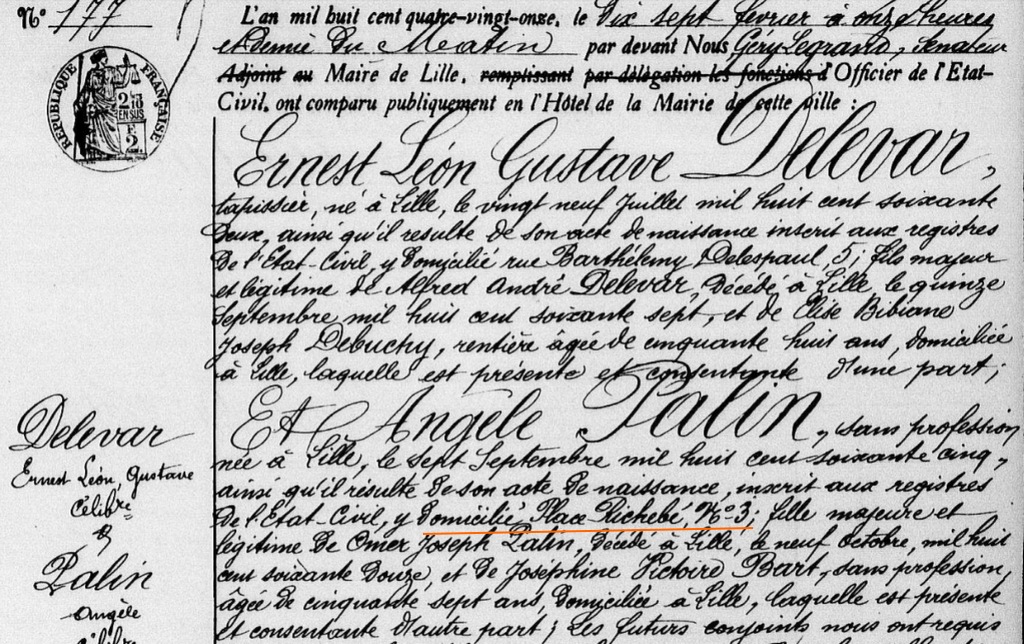 N° 177
L'an mil huit cent quatre-vingt-onze, le Dix sept février à onze heures
et Demie du Matin par devant Nous Géry Legrand, Sénateur
Adjoint au Maire de Lille, remplissant par délégation les fonctions d'Officier de l'Etat-
Civil, ont comparu publiquement en l'Hôtel de la Mairie de cette ville :
RÉPUBLIQUE FRANÇAISE
2/10 EN SUS
Ernest Léon Gustave Delevar,
tapissier, né à Lille, le vingt neuf Juillet mil huit cent soixante
Deux, ainsi qu'il résulte de son acte de naissance inscrit aux registres
De l'Etat-Civil, y Domicilié rue Barthélemy Delespaul, 5; fils majeur
et légitime de Alfred André Delevar, Décédé à Lille le quinze
Septembre mil huit cent soixante sept, et de Elise Bibiane
Joseph Debuchy, rentière âgée de cinquante huit ans, Domiciliée
à Lille, laquelle est présente et consentante D'une part;
Et Angèle Palin, sans profession
née à Lille, le Sept Septembre mil huit cent soixante cinq,
ainsi qu'il résulte de son acte de naissance, inscrit aux registres
De l'Etat-Civil, y Domicilié Place Richebé, N° 3; fille majeure et
légitime De Omer Joseph Palin, Décédé à Lille, le neuf Octobre, mil huit
cent soixante Douze, et de Joséphine Victoire Bart, sans profession,
âgée de cinquante sept ans, Domiciliée à Lille, laquelle est présente
et consentante D'autre part; Les futurs conjoints nous ont requis
Delevar
Ernest Léon, Gustave
Célibre
&
Palin
Angèle
Célibre